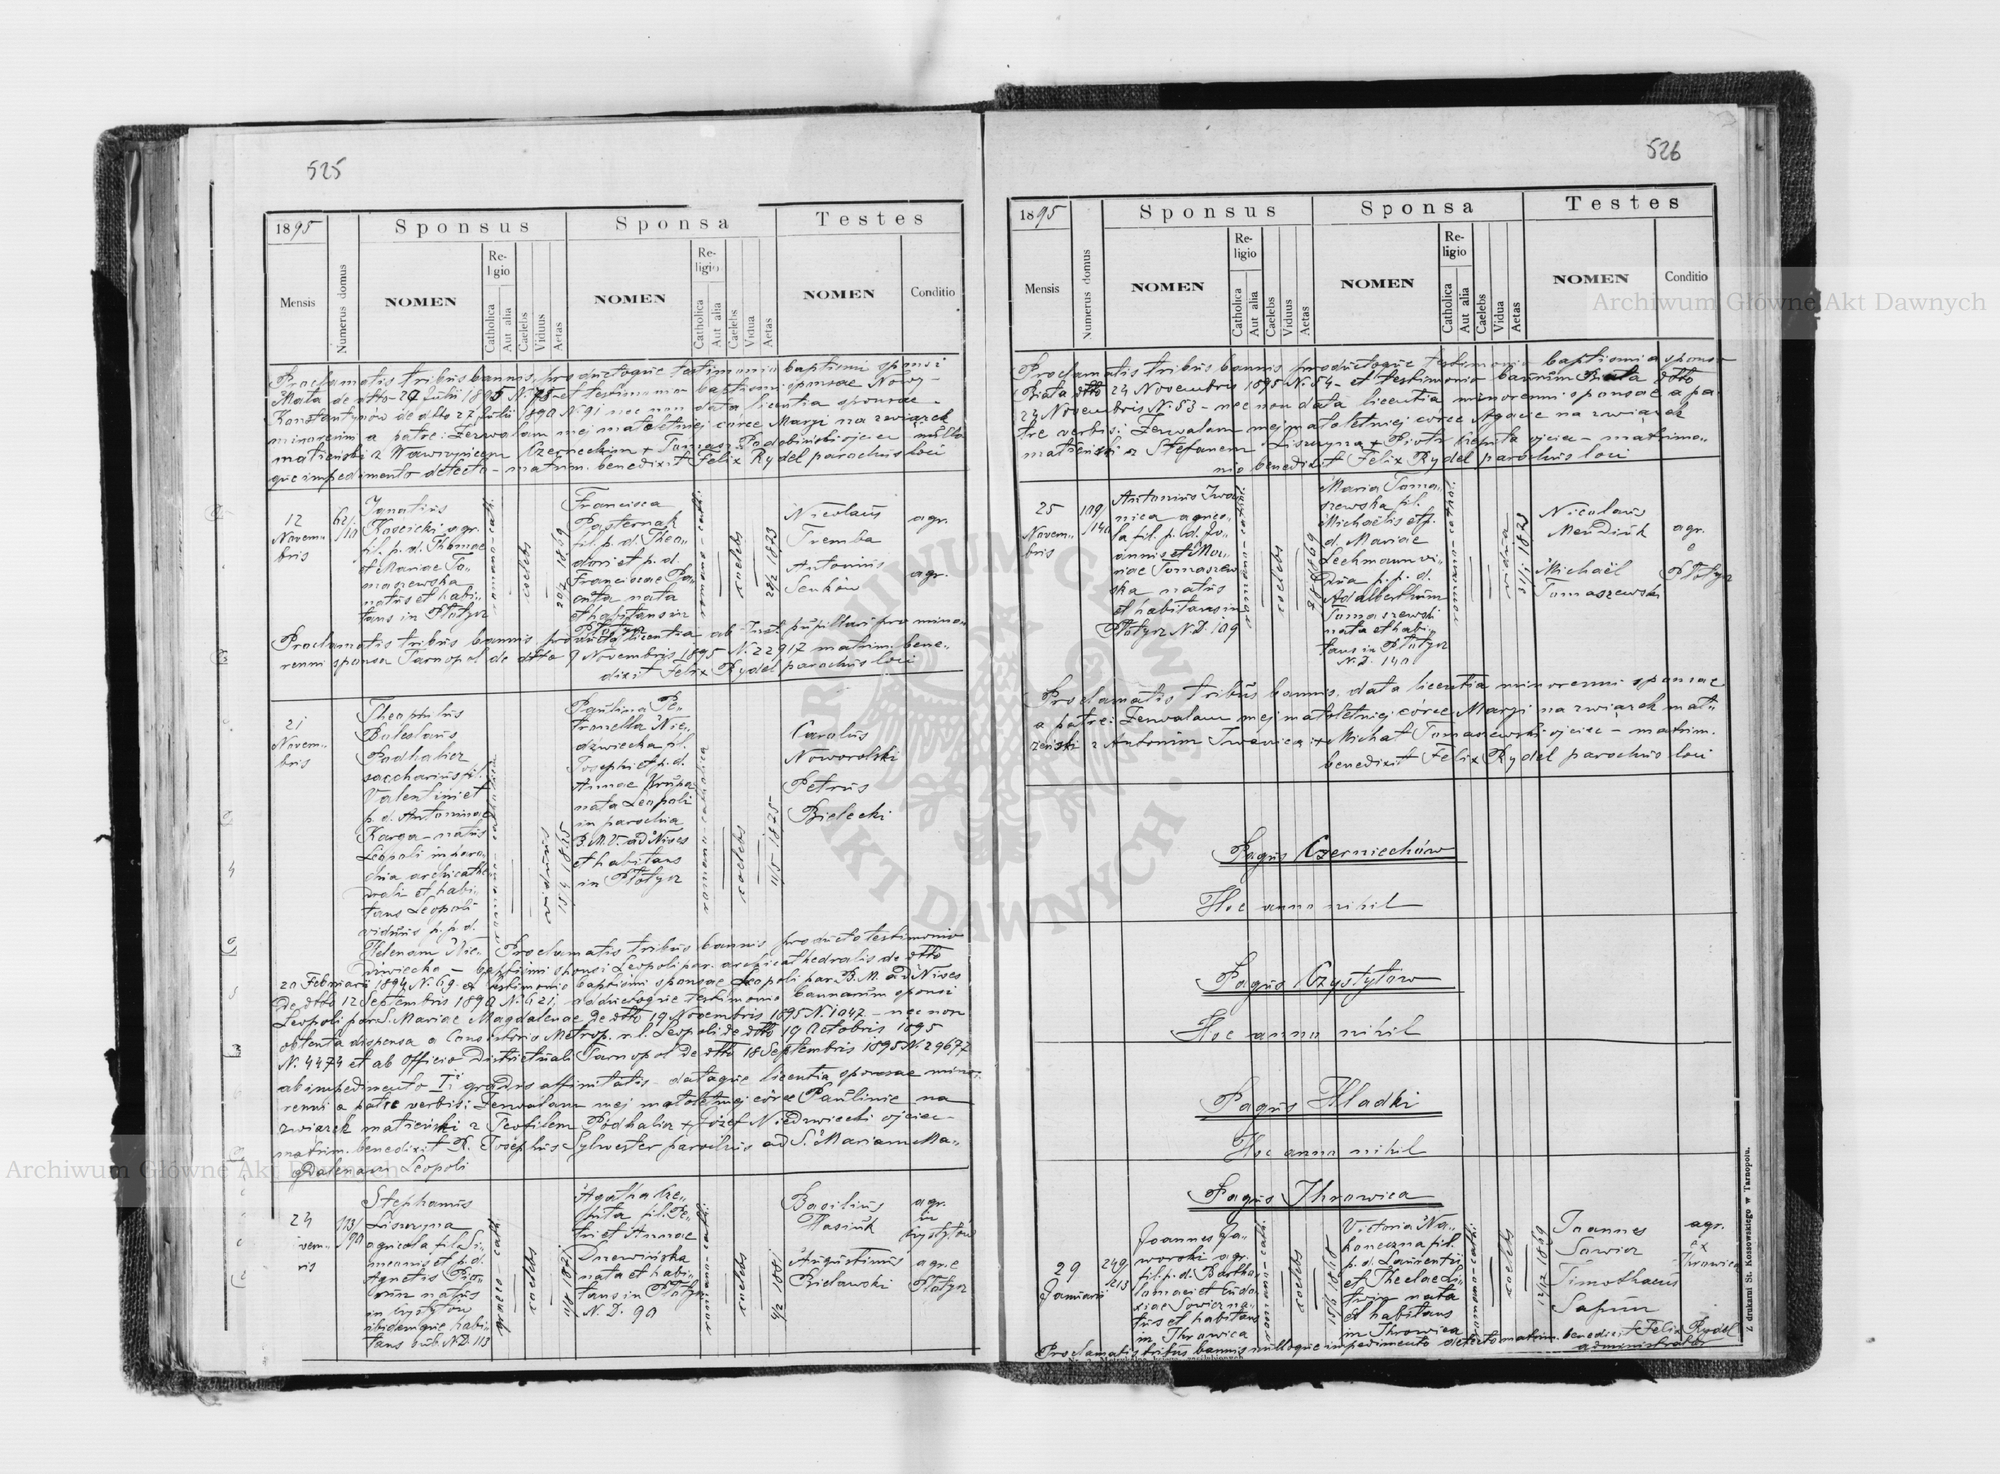 525
1895
Sponsus
Sponsa
Testes
Mensis
Numerus domus
NOMEN
Religio
Catholica
Aut alia
Caelebs
Viduus
Aetas
NOMEN
Religio
Catholica
Aut alia
Caelebs
Vidua
Aetas
NOMEN
Conditio
Proclamatis tribus bannis, productoque testimonio baptismi sponsi
Konstantynów de dtto 27 Julii 1890 N. 91 nec non data licentia sponsae
minorenni a patre: Zezwalam mej małoletniej córce Maryi na związek
małżeński z Wawrzyńcem Czerneckim + Tomasz ojciec nullo
que impedimento detecto - matrim. benedixit Felix Rydel parochus loci
12
Novem-
bris
62/
10
Ignatius
Kosicki agr.
fil. p. d. Thomae
et Mariae To-
maszewska
natus et habi-
tans in Płotycz
romano-cath.
coelebs
20/7 1869
Francisca
Pasternak
fil. p. d. Theo-
dori et p. d.
Franciscae Pa-
nata
et habitans in
Płotycz
romano-cath.
coelebs
Nicolaus
Tremba
Antonius
Senków
agr.
agr.
Proclamatis tribus bannis producta licentia ab Inst. pupillari pro mino-
renni sponsa Tarnopol de dtto 9 Novembris 1895 N. 22917 matrim. bene-
dixit Felix Rydel parochus loci
21
Novem-
bris
Theophilus
Boleslaus
Podhalicz
saccharius fil.
Valentini et
p. d. Antoninae
Karga - natus
Leopoli in paro-
chia archicathe-
drali et habi-
tans Leopoli
viduus p. p. d.
Helenam Nie-
dzwiecka -
romano-catholica
viduus
Paulina Pe-
tronella Nie-
dzwiecka fil.
Josephi et p. d.
Annae Krupa
nata Leopoli
in parochia
B. M. V. ad Nives
et habitans
in Płotycz
romano-catholica
coelebs
11/5 1875
Carolus
Noworolski
Petrus
Bielecki
Proclamatis tribus bannis producto testimonio
baptismi sponsi Leopoli par. archicathedralis de dtto
20 Februarii 1894 N. 69. et testimonio baptismi sponsae Leopoli par. B. M. ad Nives
de dtto 12 Septembris 1890 N. 621, adductoque testimonio bannorum sponsi
Leopoli par. S. Mariae Magdalenae de dtto 19 Novembris 1895 N. 1047 - nec non
obtenta dispensa a Consistorio Metrop. r. l. Leopoli de dtto 19 Octobris 1895
N. 4474 et ab Officio Districtuali Tarnopol de dtto 18 Septembris 1895 N. 29677
ab impedimento I. gradus affinitatis - dataque licentia sponsae mino-
renni a patre verbis: Zezwalam mej małoletniej córce Paulinie na
związek małżeński z Teofilem Podhalicz + Józef Niedzwiecki ojciec -
matrim. benedixit R. Josephus Sylwester parochus ad S. Mariam Ma-
gdalenam Leopoli
24
113/
90
Stephanus
Liszczyna
agricola fil. Si-
meonis et p. d.
Agnetis
natus
in Czystyłow
ibidemque habi-
tans sub N. D. 113
graeco-cath.
coelebs
Agatha Cze-
puta fil. Pe-
tri et Annae
nata et habi-
tans in Płotycz
N. D. 90
romano-cath.
coelebs
Basilius
Wasiuk
Augustinus
Bielawski
agr.
in
Czystyłów
agr. e
Płotycz
526
1895
Sponsus
Sponsa
Testes
Mensis
Numerus domus
NOMEN
Religio
Catholica
Aut alia
Caelebs
Viduus
Aetas
NOMEN
Religio
Catholica
Aut alia
Caelebs
Vidua
Aetas
NOMEN
Conditio
Proclamatis tribus bannis productoque testimonio baptismi a sponso
Biała dtto 24 Novembris 1895 N. 54 - et testimonio bannum Biała dtto
24 Novembris N. 53 - nec non data licentia minorenni sponsae a pa-
tre verbis: Zezwalam mej małoletniej córce Agacie na związek
małżeński z Stefanem Liszczyna + Piotr Czeputa ojciec - matrimo-
nio benedixit Felix Rydel parochus loci
25
Novem-
bris
109
/140
Antonius Iwa-
nica agrico-
la fil. p. d. Jo-
annis et Ma-
riae Tomaszew-
ska natus
et habitans in
Płotycz N. D. 109
romano-cathol.
coelebs
Maria Toma-
szewska fil.
Michaëlis et p.
d. Mariae
Lechmann vi-
dua p. p. d.
Adalbertum
Tomaszewski
nata et habi-
tans in Płotycz
N. D. 140
romano-cathol.
vidua
Nicolaus
Mendiuk
Michaël
Tomaszewski
agr.
e
Płotycz
Proclamatis tribus bannis, data licentia minorenni sponsae
a patre: Zezwalam mej małoletniej córce Maryi na związek mał-
żeński z Antonim Iwanica + Michał Tomaszewski ojciec - matrim.
benedixit Felix Rydel parochus loci
Pagus Czerniechów
Hoc anno nihil
Pagus Czystyłow
Hoc anno nihil
Pagus Hladki
Hoc anno nihil
Pagus Ihrowica
29
Januarii
249/
213
Joannes Ja-
worski agr.
fil. p. d. Bartho-
lomaei et Eudo-
xiae Sowicz na-
tus et habitans
in Ihrowica
romano-cath.
coelebs
Victoria Na-
koneczna fil.
p. d. Laurentii
et Theclae Li-
twin nata
et habitans
in Ihrowica
romano-cath.
coelebs
12/12 1869
Joannes
Sawicz
Timothaeus
Sapun
agr.
ex
Ihrowica
Proclamatis tribus bannis nulloque impedimento detecto matrim. benedixit Felix Rydel
administrator
Z drukarni St. Kossowskiego w Tarnopolu.
Archiwum Główne Akt Dawnych
Archiwum Główne Akt Dawnych
ARCHIWUM GŁÓWNE AKT DAWNYCH